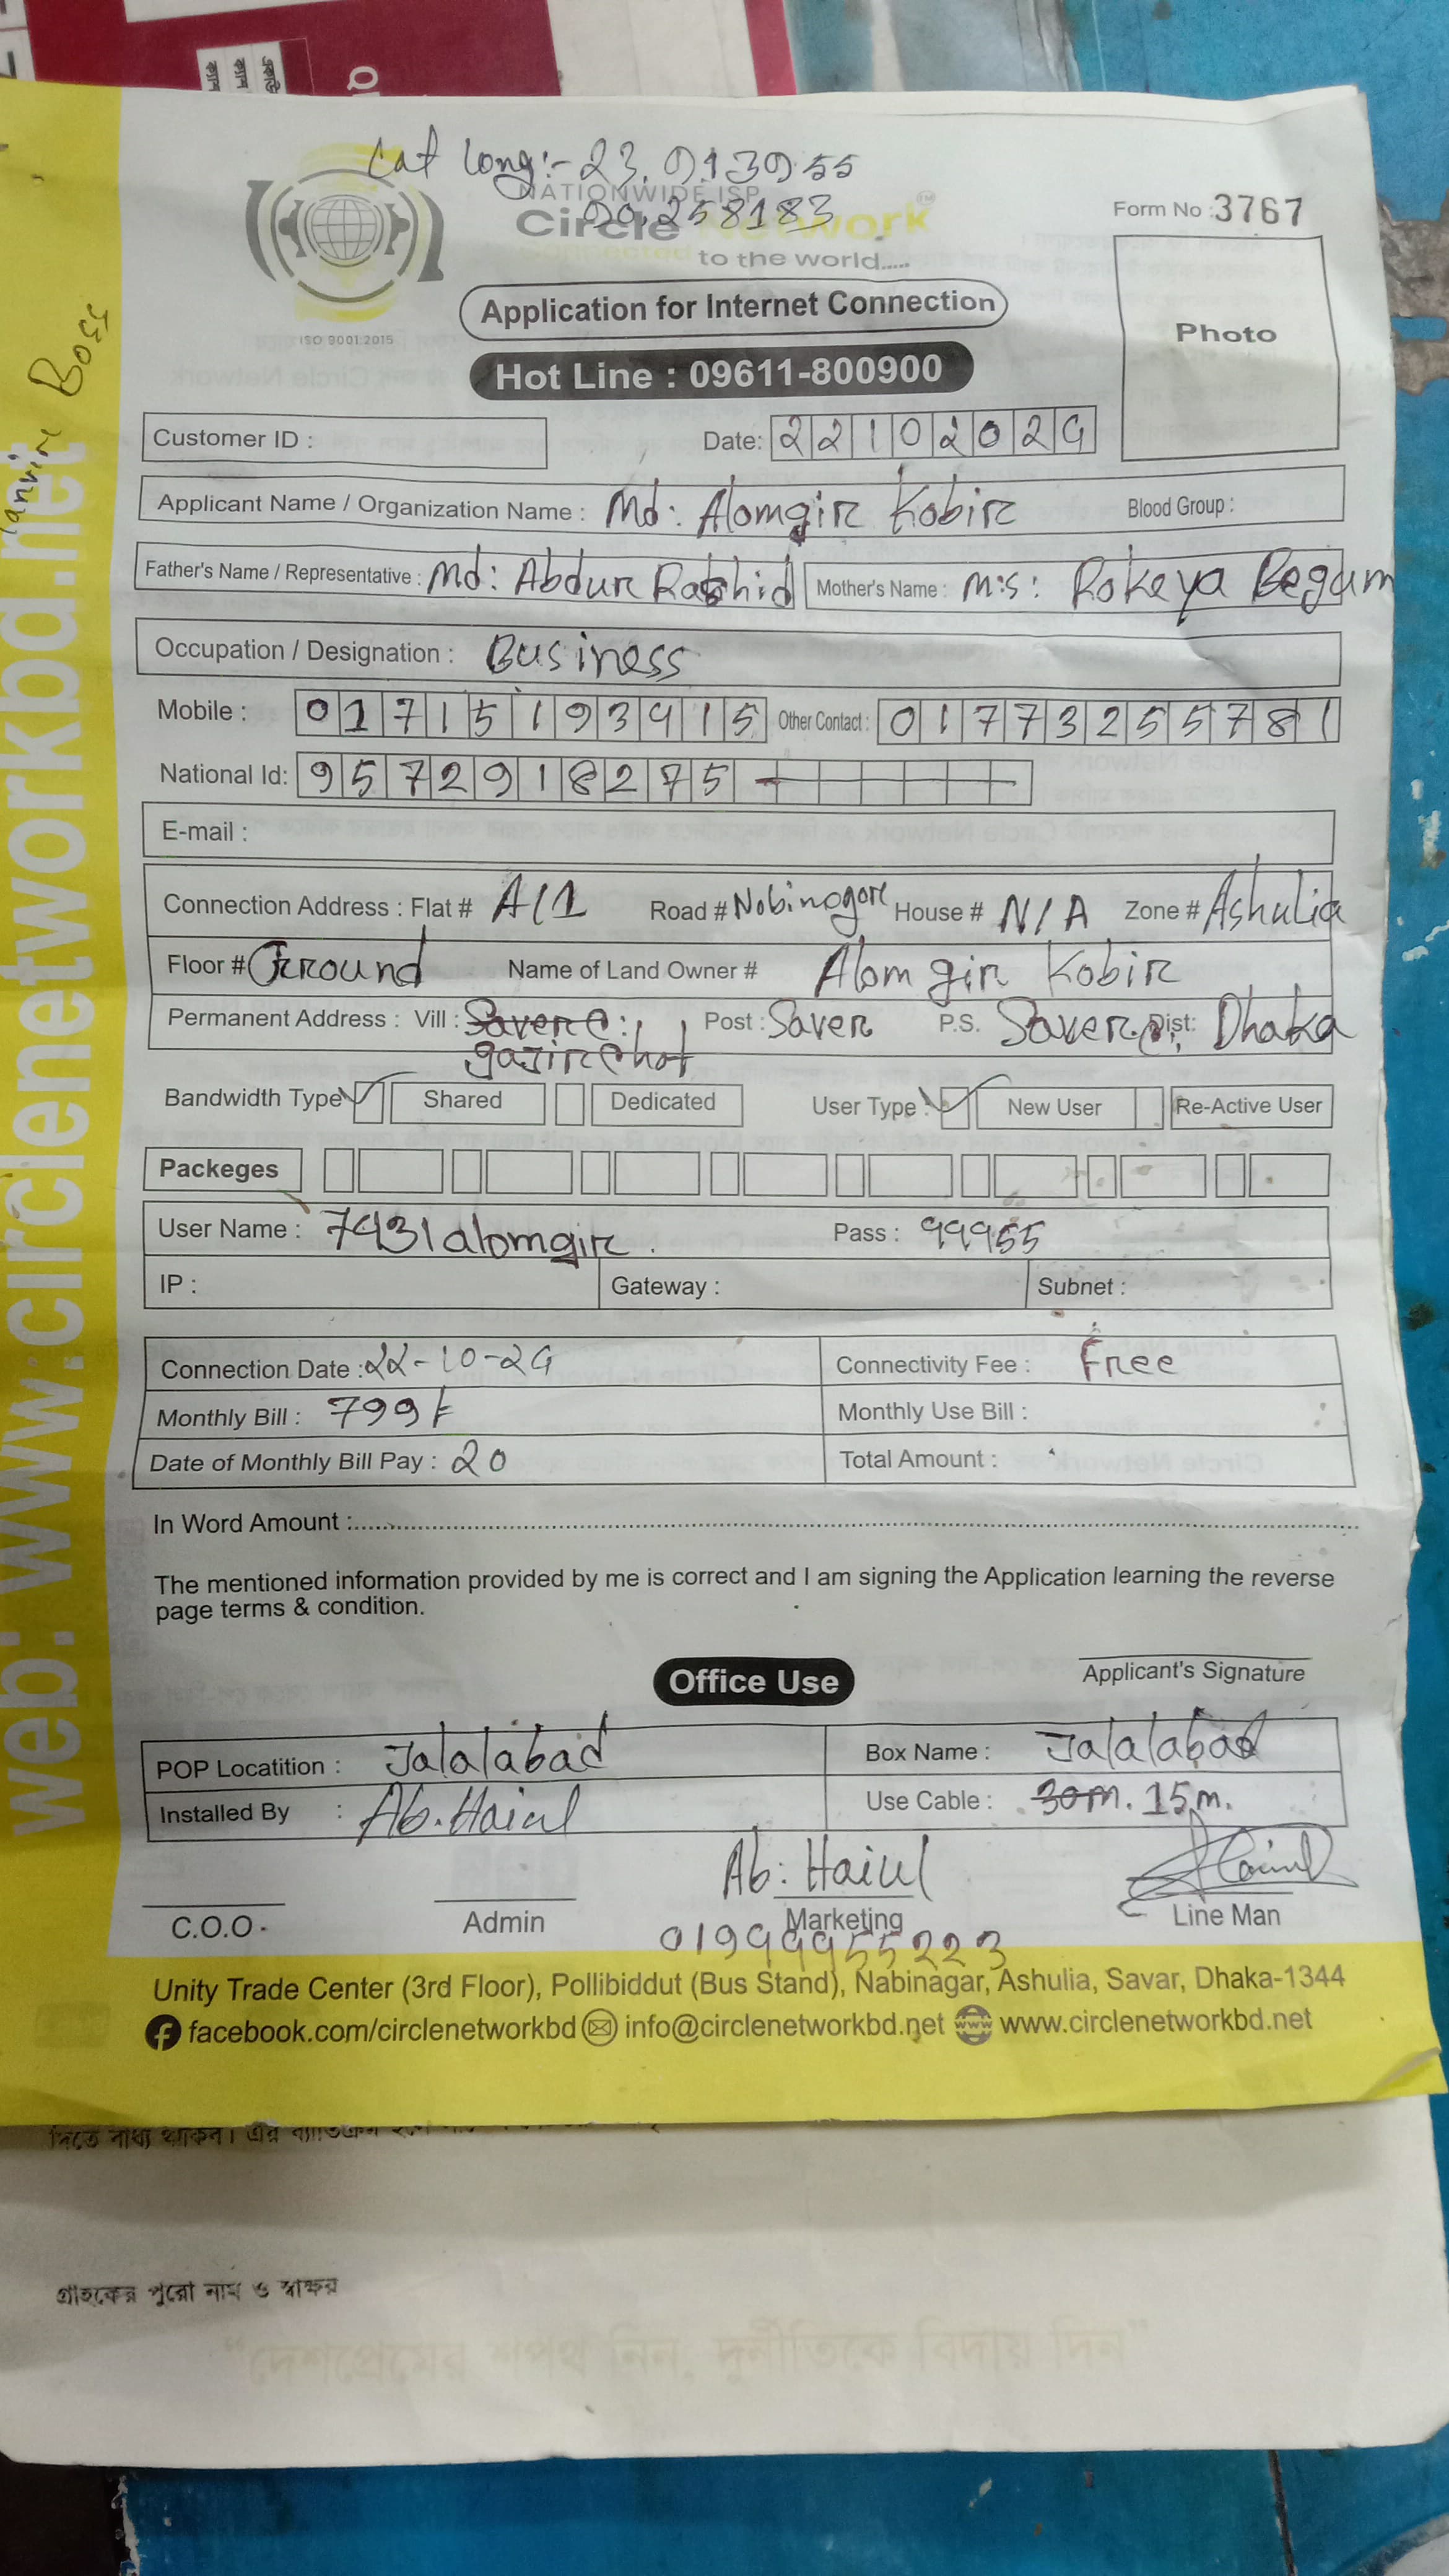 Cat long:- 23.913955
90.258183
NATIONWIDE ISP
Circle Network™
Connected to the world.....
ISO 9001:2015
Form No : 3767
Photo
Application for Internet Connection
Hot Line : 09611-800900
Customer ID :
Date: 22102024
Applicant Name / Organization Name : Md: Alomgir Kobir Blood Group :
Father's Name / Representative : Md: Abdur Rashid Mother's Name : M:s: Rokeya Begum
Occupation / Designation : Business
Mobile : 01715193415 Other Contact : 01773255781
National Id: 9572918275
E-mail :
Connection Address : Flat # A/1 Road # Nobinogor House # N/A Zone # Ashulia
Floor # Ground Name of Land Owner # Alomgir Kobir
Permanent Address : Vill : Post : Saver P.S. Saver Dist: Dhaka
gazirchot
Bandwidth Type Shared Dedicated User Type : New User Re-Active User
Packeges
User Name : 7431alomgir. Pass : 99955
IP : Gateway : Subnet :
Connection Date : 22-10-24 Connectivity Fee : Free
Monthly Bill : 799 Monthly Use Bill :
Date of Monthly Bill Pay : 20 Total Amount :
In Word Amount :
The mentioned information provided by me is correct and I am signing the Application learning the reverse
page terms & condition.
Applicant's Signature
Office Use
POP Locatition : Jalalabad Box Name : Jalalabad
Installed By : Ab. Haiul Use Cable : 30m. 15m.
Ab: Haiul
C.O.O Admin Marketing Line Man
01999955223
Unity Trade Center (3rd Floor), Pollibiddut (Bus Stand), Nabinagar, Ashulia, Savar, Dhaka-1344
facebook.com/circlenetworkbd info@circlenetworkbd.net www.circlenetworkbd.net
web: www.circlenetworkbd.net
Tanvir Boss
গ্রাহকের পুরো নাম ও স্বাক্ষর
“দেশপ্রেমের শপথ নিন, দুর্নীতিকে বিদায় দিন”